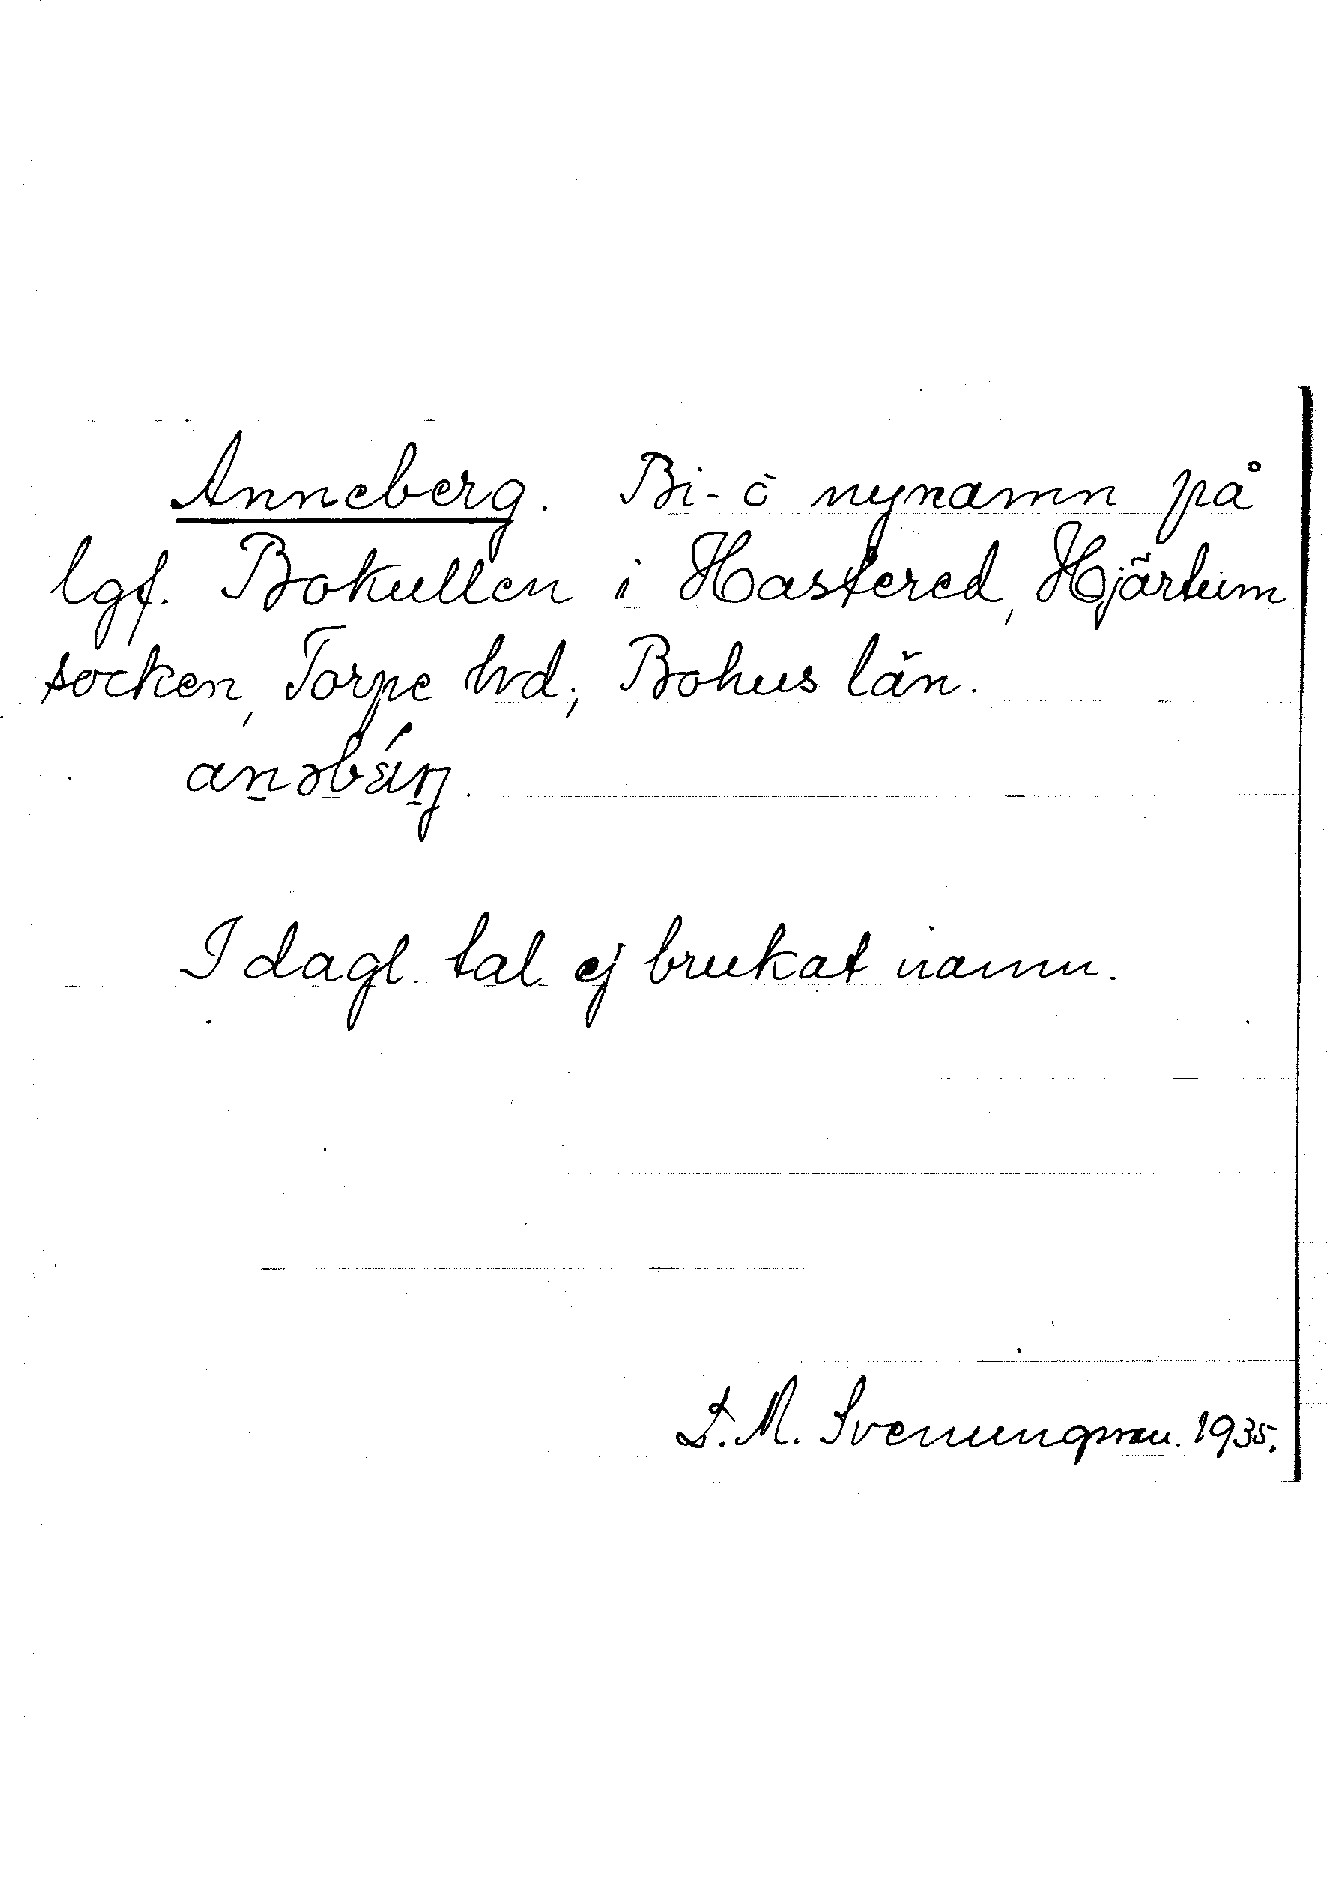 Anneberg. Bi- o nynamn på
lgf. Bokullen i Hastered, Hjärtum
socken, Torpe hd; Bohus län.
I dagl. tal ej brukat namn.
M. Svenungsson. 1935.